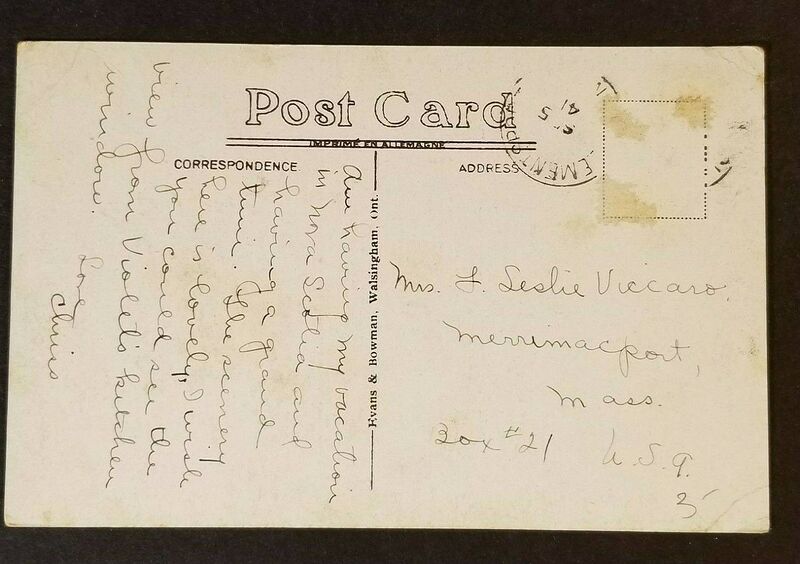 Post Card
IMPRIMÉ EN ALLEMAGNE
CORRESPONDENCE
ADDRESS
Evans & Bowman, Walsingham, Ont.
Am having my vacation
in Nova Scotia and
having a grand
time. The scenery
here is lovely, I wish
you could see the
view from Violet's kitchen
window.
Love
Chris
Mrs. F. Leslie Viccaro.
Merrimacport,
Mass.
Box #21
U.S.A.
5